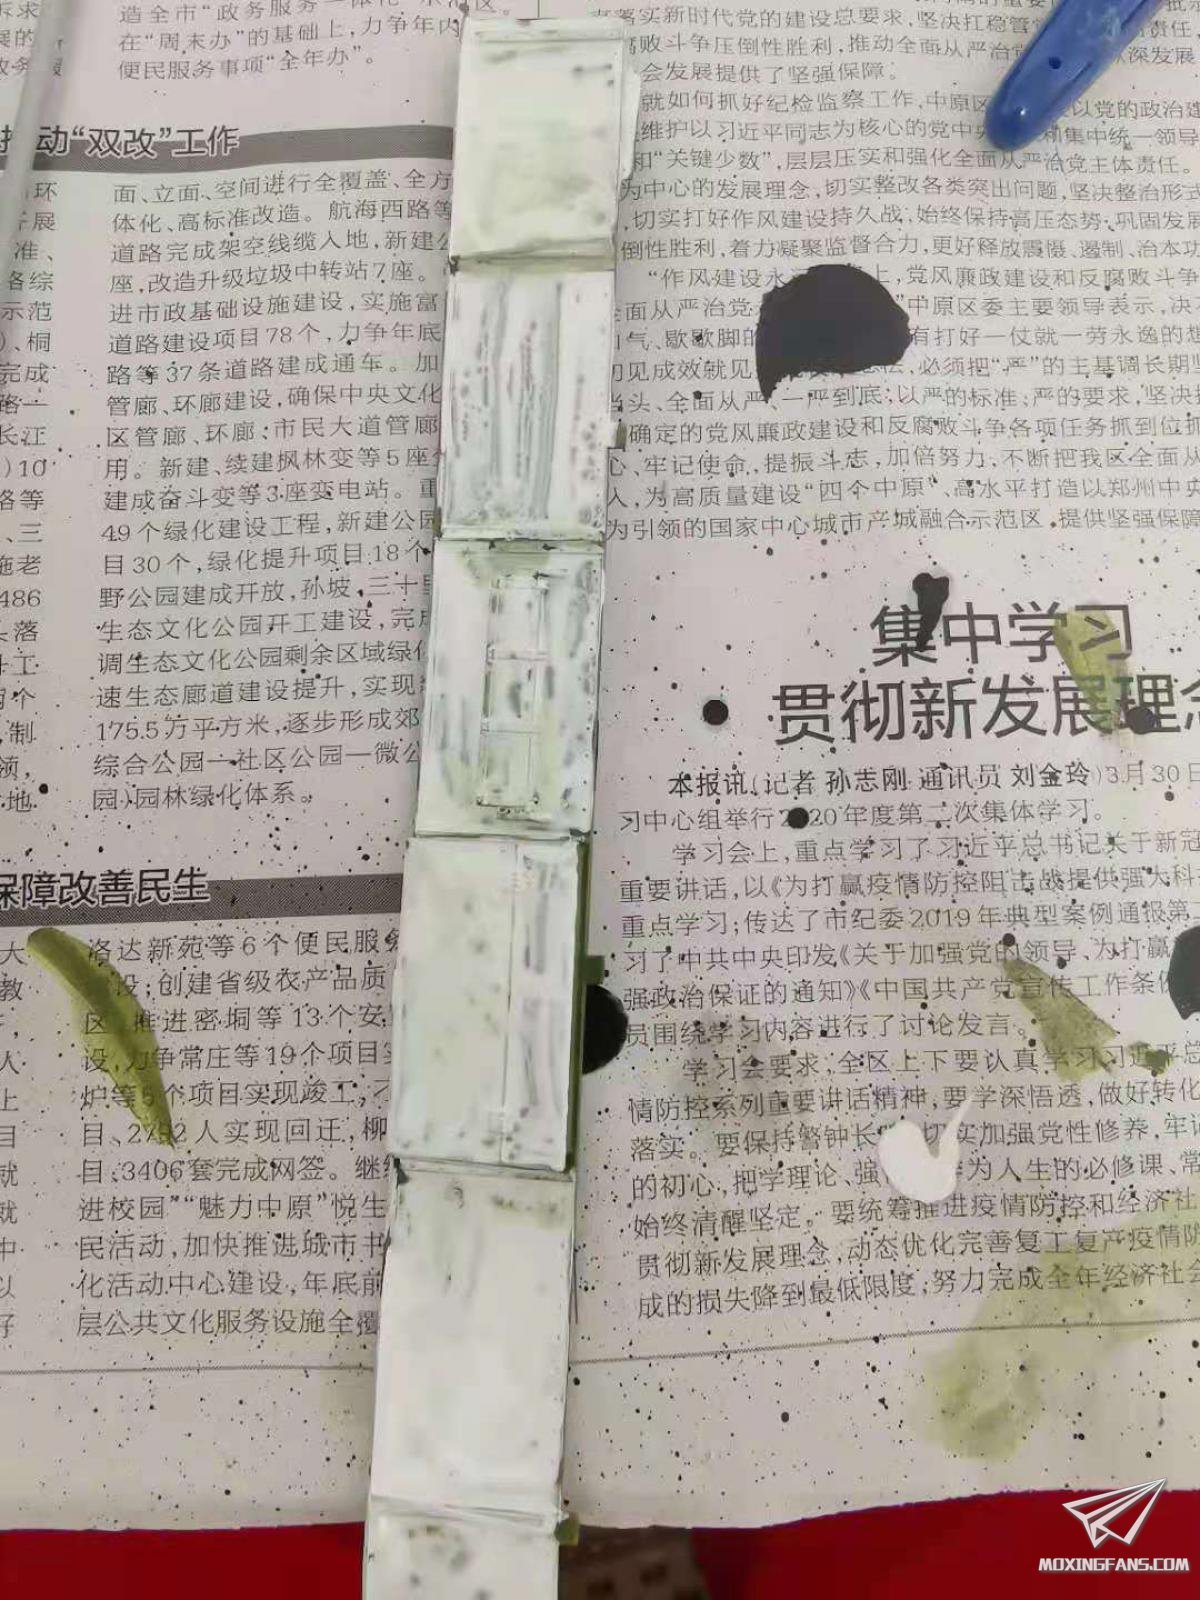 造全市“政务服务一体化”示范区。
在“周末办”的基础上，力争年内
便民服务事项“全年办”。
动“双改”工作
面、立面、空间进行全覆盖、全方
体化、高标准改造。航海西路等
道路完成架空线缆入地，新建公
座，改造升级垃圾中转站7座。
进市政基础设施建设，实施富
道路建设项目78个，力争年底
路等37条道路建成通车。加
管廊、环廊建设，确保中央文化
区管廊、环廊；市民大道管廊
用。新建、续建枫林变等5座
建成奋斗变等3座变电站。重
49个绿化建设工程，新建公园
目30个，绿化提升项目18个
野公园建成开放，孙坡、三十里
生态文化公园开工建设，完成
调生态文化公园剩余区域绿化
速生态廊道建设提升，实现
175.5万平方米，逐步形成郊
综合公园—社区公园—微公
园）园林绿化体系。
保障改善民生
洛达新苑等6个便民服务
设；创建省级农产品质
区 推进密垌等13个安
设，力争常庄等19个项目
炉等 个项目实现竣工，
目、 人实现回迁，柳
目、3406套完成网签。继续
进校园”“魅力中原”悦生
民活动，加快推进城市书
化活动中心建设，年底前
层公共文化服务设施全覆
环
展
准、
络综
示范
）、桐
完成
路一
长江
）10
路等
、三
施老
486
落
工
两个
制
领，
地
大
教
人
上
目
就
就
中
以
好
落实新时代党的建设总要求，坚决扛稳管 责任
腐败斗争压倒性胜利，推动全面从严治党 纵深发展
会发展提供了坚强保障。
就如何抓好纪检监察工作，中原区 要以党的政治建
维护以习近平同志为核心的党中央 和集中统一领导
和“关键少数”，层层压实和强化全面从严治党主体责任。
为中心的发展理念，切实整改各类突出问题，坚决整治形式
，切实打好作风建设持久战；始终保持高压态势，巩固发展
倒性胜利，着力凝聚监督合力，更好释放震慑、遏制、治本功
“作风建设永 上，党风廉政建设和反腐败斗争
全面从严治党 ”中原区委主要领导表示，决
口气、歇歇脚的 有打好一仗就一劳永逸的想
初见成效就见 ，必须把“严”的主基调长期坚
当头、全面从严、一严到底；以严的标准、严的要求，坚决扛
确定的党风廉政建设和反腐败斗争各项任务抓到位抓
心、牢记使命，提振斗志，加倍努力，不断把我区全面从
入，为高质量建设“四个中原”、高水平打造以郑州中央
为引领的国家中心城市产城融合示范区，提供坚强保障
集中学习
贯彻新发展理念
本报讯（记者 孙志刚 通讯员 刘金玲）3月30日
习中心组举行2020年度第二次集体学习。
学习会上，重点学习了习近平总书记关于新冠
重要讲话，以《为打赢疫情防控阻击战提供强大科
重点学习；传达了市纪委2019年典型案例通报第
习了中共中央印发《关于加强党的领导、为打赢
强政治保证的通知》《中国共产党宣传工作条例
员围绕学习内容进行了讨论发言。
学习会要求，全区上下要认真学习习近平总
情防控系列重要讲话精神，要学深悟透，做好转化
落实。要保持警钟长 切实加强党性修养，牢记
的初心，把学理论、强 为人生的必修课、常
始终清醒坚定。要统筹推进疫情防控和经济社
贯彻新发展理念，动态优化完善复工复产疫情防
成的损失降到最低限度；努力完成全年经济社会
MOXINGFANS.COM